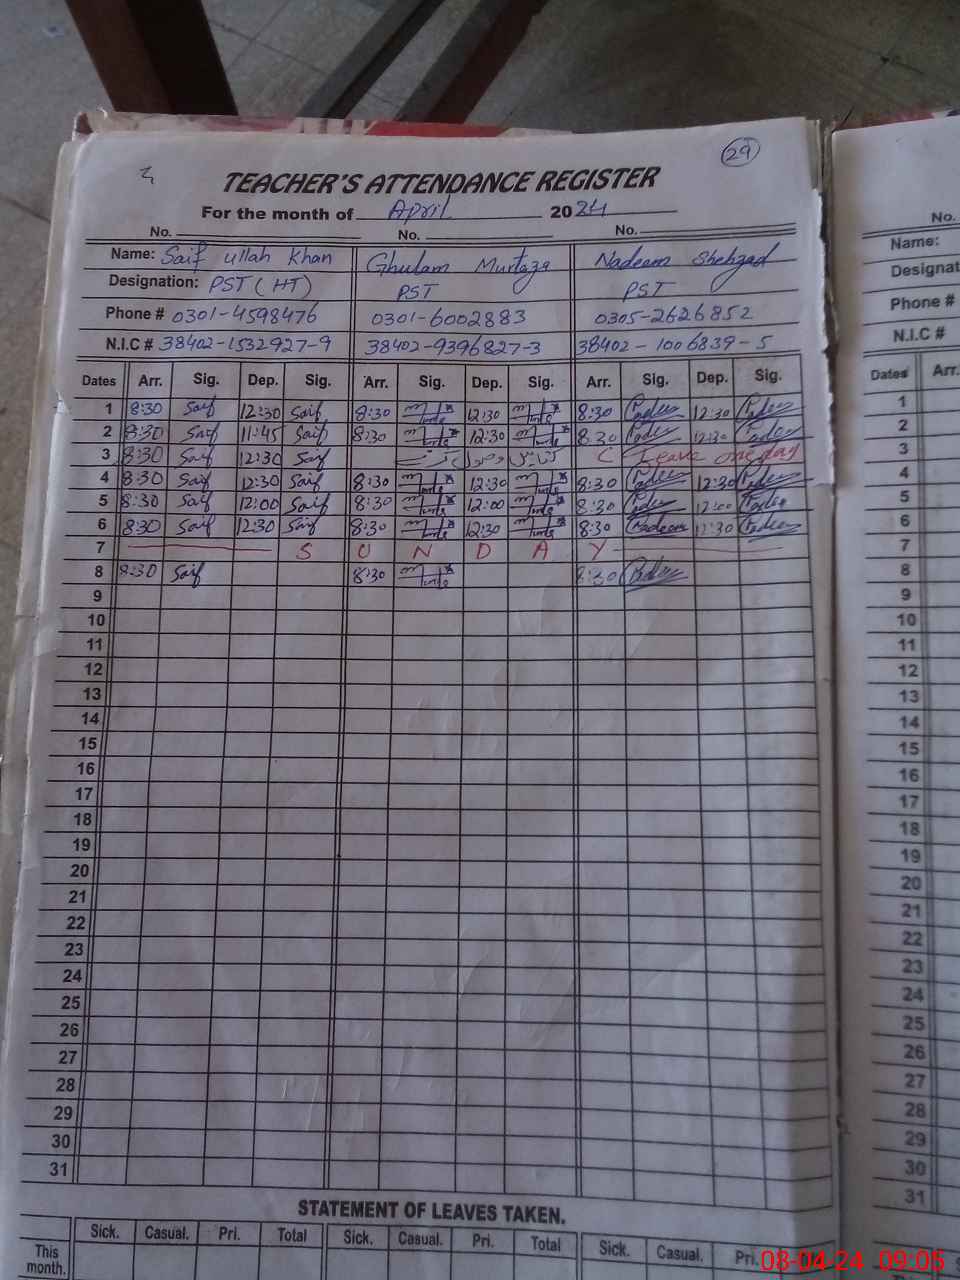 29
TEACHER'S ATTENDANCE REGISTER
For the month of April 2024
No. No. No.
Name: Saif ullah Khan Ghulam Murtaza Nadeem Shehzad
Designation: PST (HT) PST PST
Phone # 0301-4598476 0301-6002883 0305-2626852
N.I.C # 38402-1532927-9 38402-9396827-3 38402-1006839-5
Dates Arr. Sig. Dep. Sig. Arr. Sig. Dep. Sig. Arr. Sig. Dep. Sig.
1 8:30 Saif 12:30 Saif 8:30 12:30 8:30 12:30
2 8:30 Saif 11:45 Saif 8:30 12:30 8:30 12:30
3 8:30 Saif 12:30 Saif C Leave one day
4 8:30 Saif 12:30 Saif 8:30 12:30 8:30 12:30
5 8:30 Saif 12:00 Saif 8:30 12:00 8:30 12:00
6 8:30 Saif 12:30 Saif 8:30 12:30 8:30 Nadeem 12:30
7 S U N D A Y
8 8:30 Saif 8:30 8:30
9
10
11
12
13
14
15
16
17
18
19
20
21
22
23
24
25
26
27
28
29
30
31
STATEMENT OF LEAVES TAKEN.
Sick. Casual. Pri. Total Sick. Casual. Pri. Total Sick. Casual. Pri.
This
month.
No.
Name:
Designat
Phone #
N.I.C #
Dates Arr.
1
2
3
4
5
6
7
8
9
10
11
12
13
14
15
16
17
18
19
20
21
22
23
24
25
26
27
28
29
30
31
08-04-24 09:05